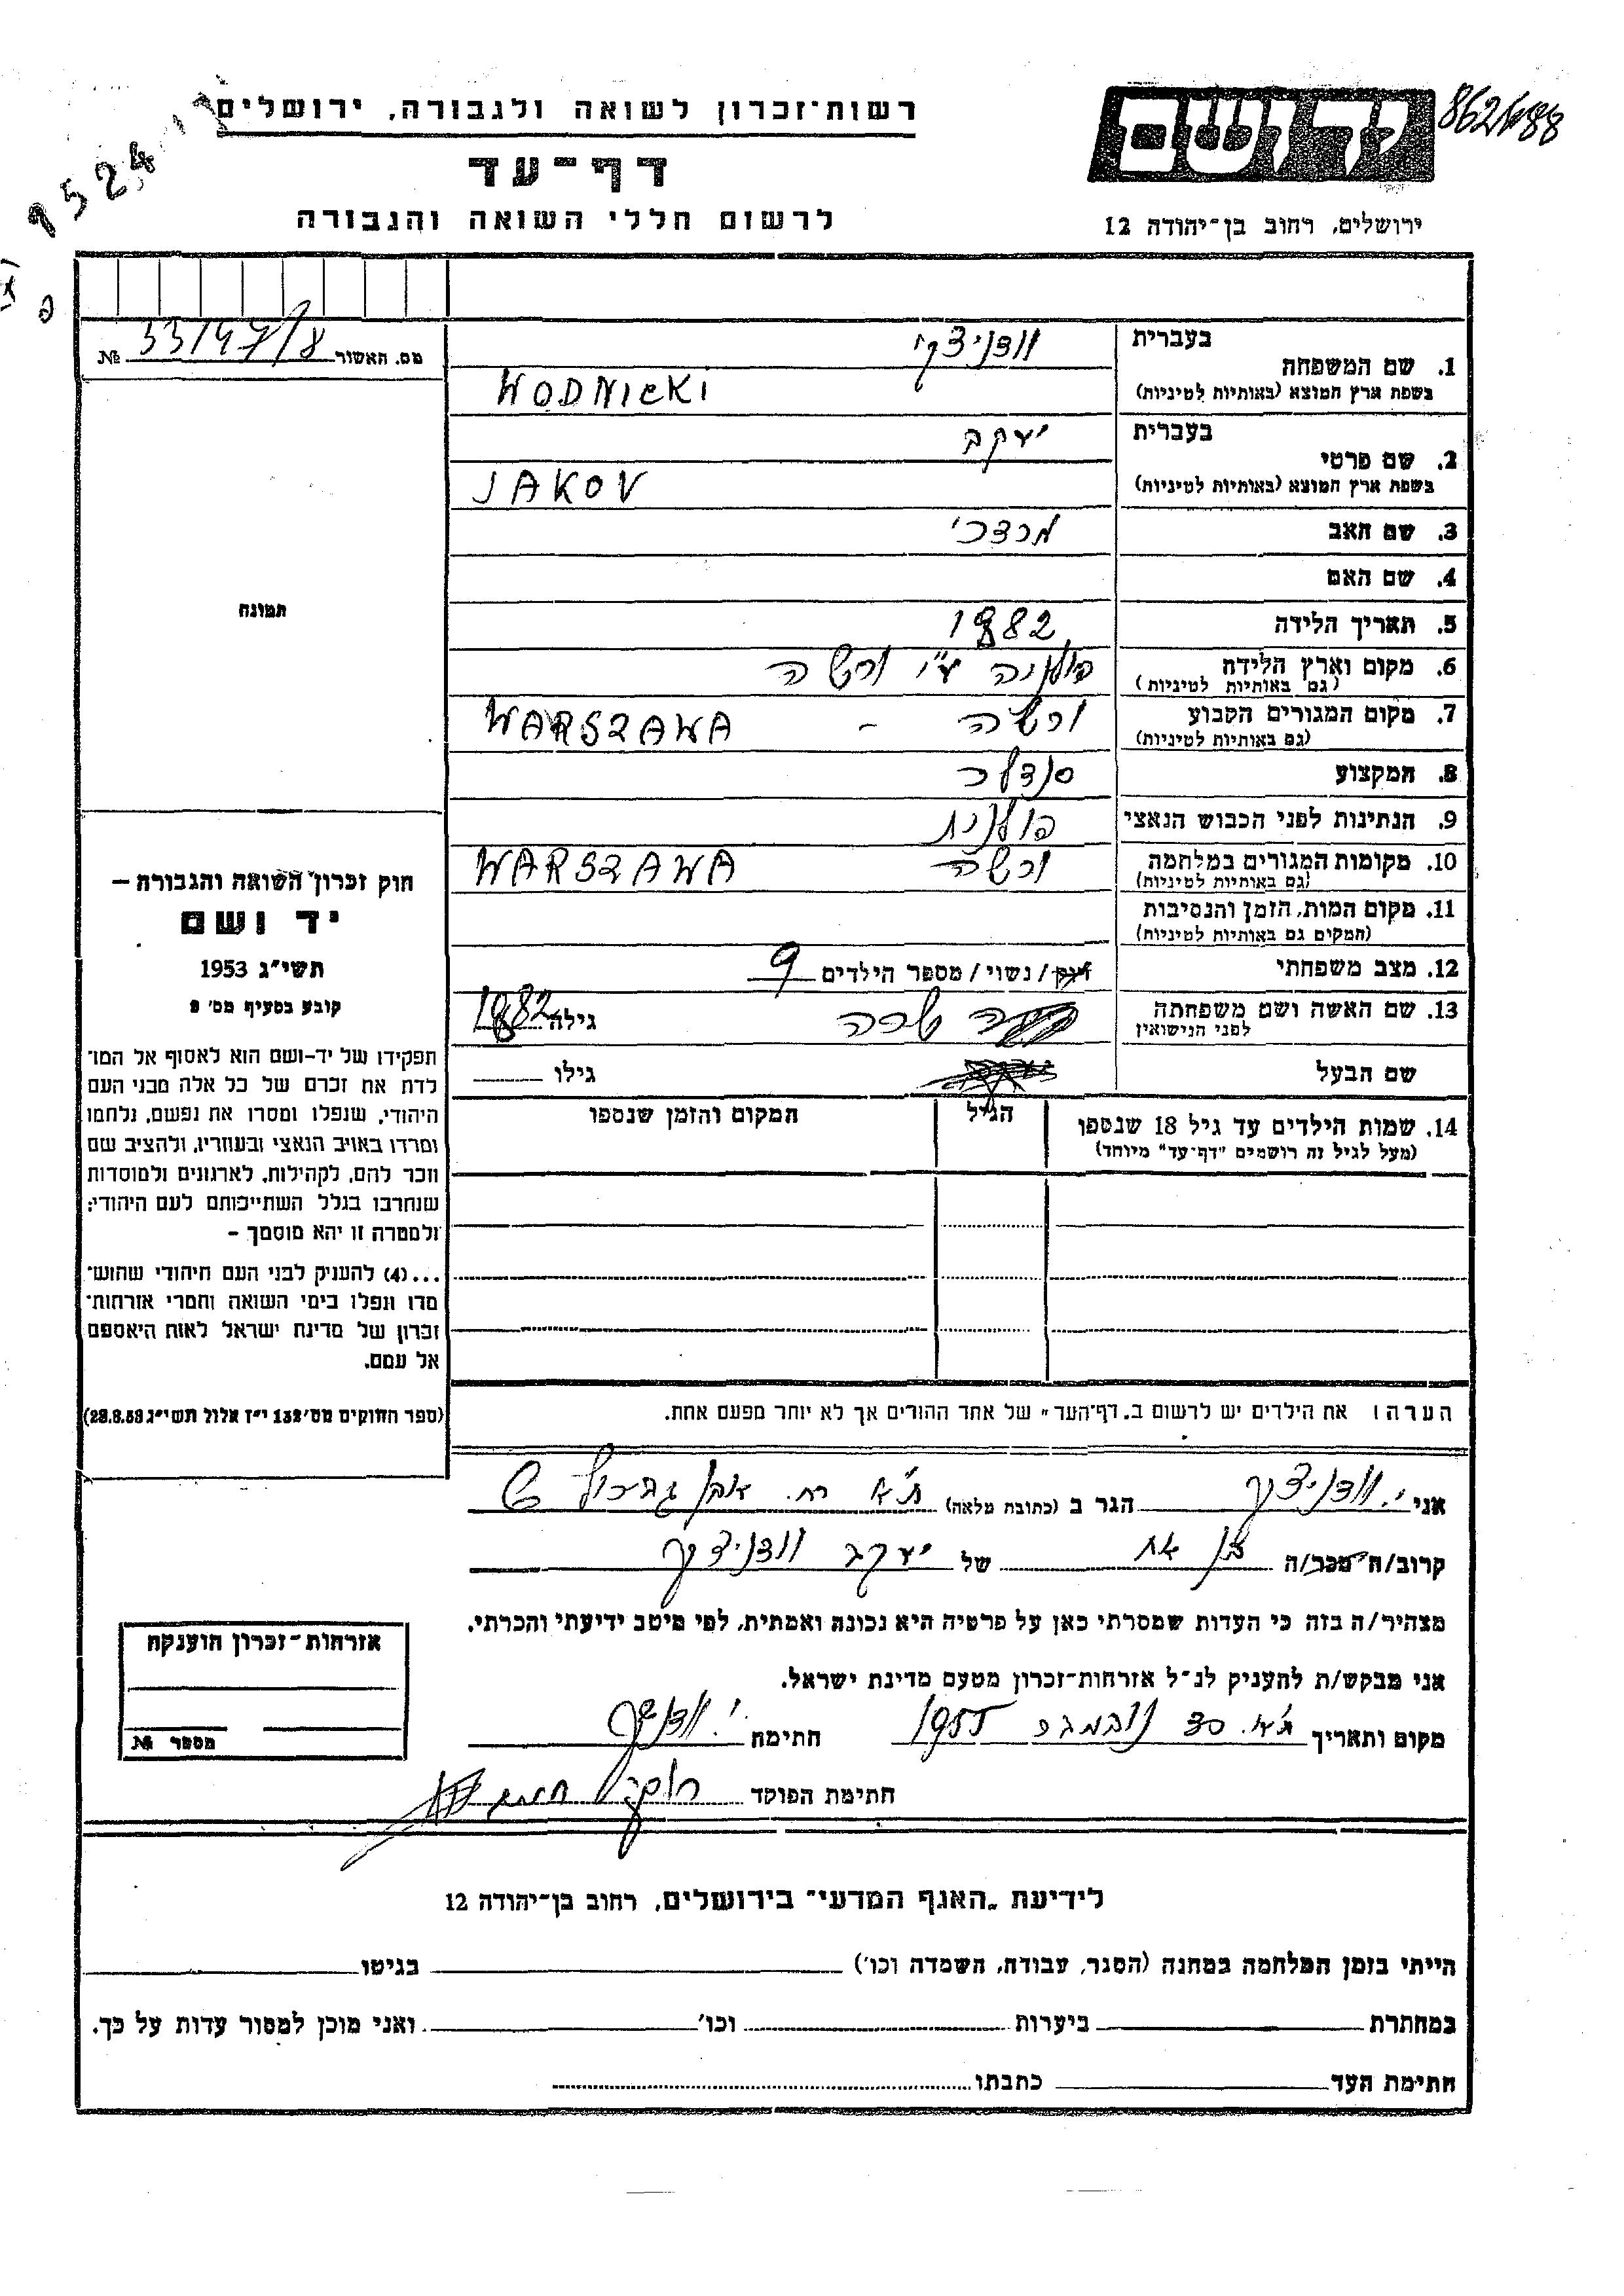 רשות־זכרון לשואה ולגבורה, ירושלים
דף־עד
לרשום חללי השואה והגבורה
יד ושם
ירושלים, רחוב בן־יהודה 12
מס. האשור № 33/47/8
בעברית וודניצקי
1. שם המשפחה
בשפת ארץ המוצא (באותיות לטיניות) WODNICKI
בעברית יעקב
2. שם פרטי
בשפת ארץ המוצא (באותיות לטיניות) JAKOV
3. שם האב מרדכי
4. שם האם
5. תאריך הלידה 1882
6. מקום וארץ הלידה פולניה ע"י ורשה
(גם באותיות לטיניות)
7. מקום המגורים הקבוע ורשה – WARSZAWA
(גם באותיות לטיניות)
8. המקצוע סנדלר
9. הנתינות לפני הכבוש הנאצי פולנית
10. מקומות המגורים במלחמה ורשה WARSZAWA
(גם באותיות לטיניות)
11. מקום המות, הזמן והנסיבות
(המקום גם באותיות לטיניות)
12. מצב משפחתי רוק / נשוי / מספר הילדים 9
13. שם האשה ושם משפחתה שרה גילה 1882
לפני הנישואין
שם הבעל גילו
14. שמות הילדים עד גיל 18 שנספו הגיל המקום והזמן שנספו
(מעל לגיל זה רושמים "דף־עד" מיוחד)
הערה: את הילדים יש לרשום ב„דף־העד" של אחד ההורים אך לא יותר מפעם אחת.
תמונה
חוק זכרון השואה והגבורה –
יד ושם
תשי"ג 1953
קובע בסעיף מס' 2
תפקידו של יד-ושם הוא לאסוף אל המו־
לדת את זכרם של כל אלה מבני העם
היהודי, שנפלו ומסרו את נפשם, נלחמו
ומרדו באויב הנאצי ובעוזריו, ולהציב שם
וזכר להם, לקהילות, לארגונים ולמוסדות
שנחרבו בגלל השתייכותם לעם היהודי;
ולמטרה זו יהא מוסמך –
...(4) להעניק לבני העם היהודי שהוש־
מדו ונפלו בימי השואה והמרי אזרחות־
זכרון של מדינת ישראל לאות היאספם
אל עמם.
(ספר החוקים מס' 132 י"ז אלול תשי"ג 28.8.53)
אני י. וודניצקי הגר ב (כתובת מלאה) ת"א רח. אבן גבירול
קרוב/ה מכר/ה בן אח של יעקב וודניצקי
מצהיר/ה בזה כי העדות שמסרתי כאן על פרטיה היא נכונה ואמתית, לפי מיטב ידיעתי והכרתי.
אני מבקש/ת להעניק לנ"ל אזרחות־זכרון מטעם מדינת ישראל.
מקום ותאריך ת"א. 30 נובמבר 1955 חתימה
חתימת הפוקד
אזרחות־זכרון הוענקה
מספר №
לידיעת „האגף המדעי" בירושלים, רחוב בן־יהודה 12
הייתי בזמן המלחמה במחנה (הסגר, עבודה, השמדה וכו') בגיטו
במחתרת ביערות וכו' ואני מוכן למסור עדות על כך.
חתימת העד כתבתו